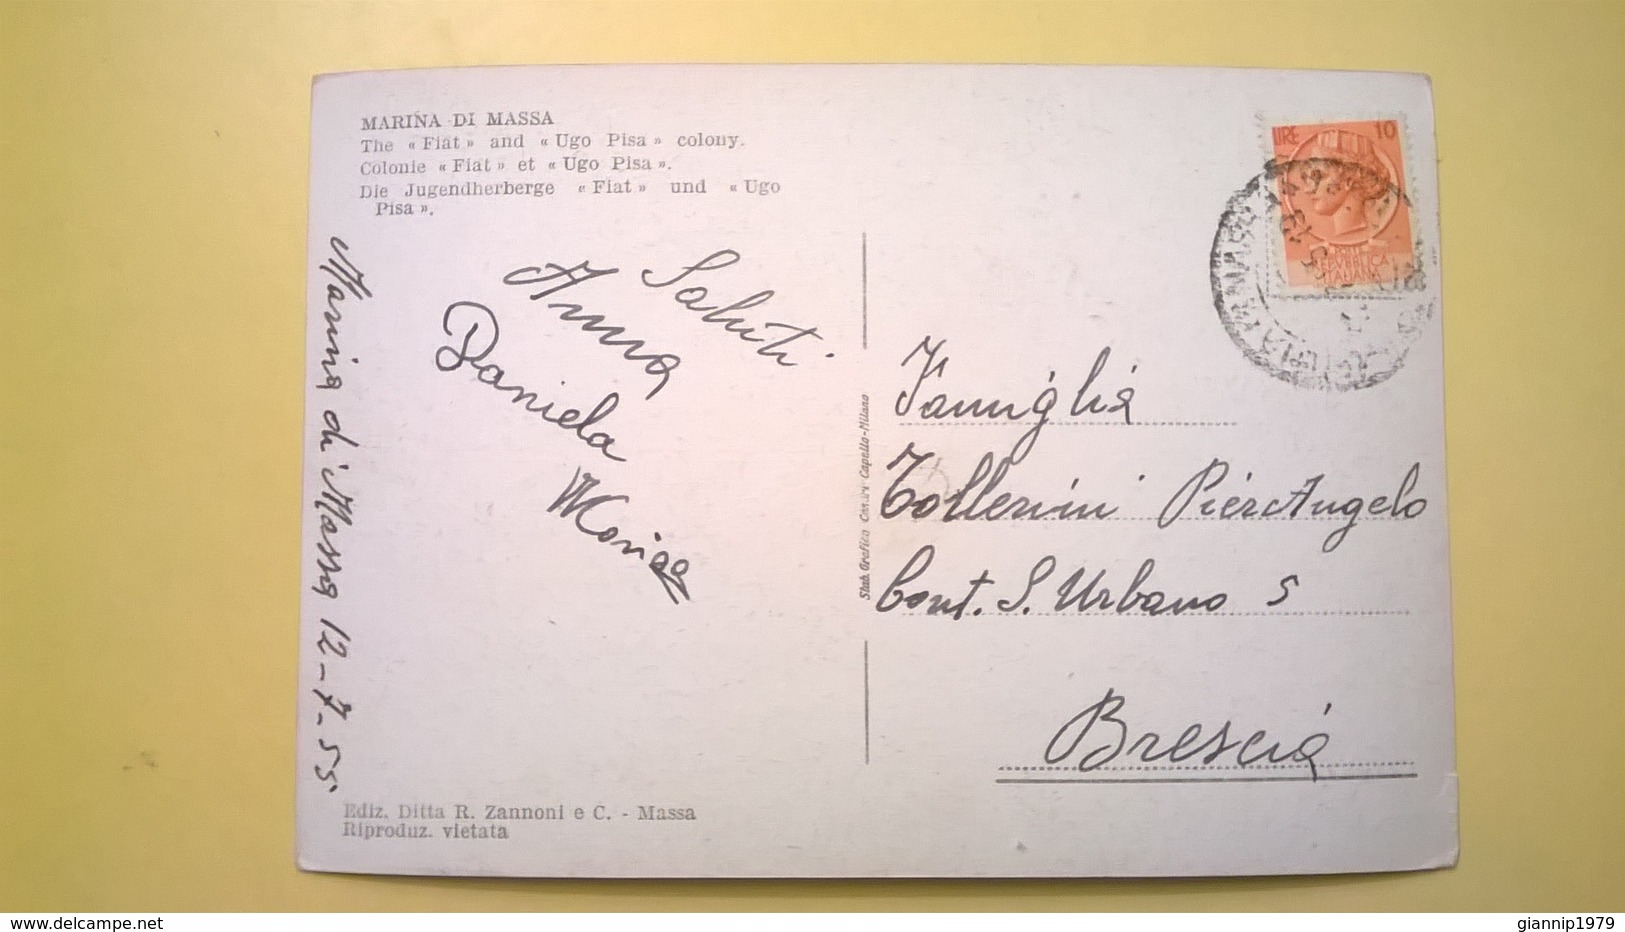 MARINA DI MASSA
The « Fiat » and « Ugo Pisa » colony.
Colonie « Fiat » et « Ugo Pisa ».
Die Jugendherberge « Fiat » und « Ugo
Pisa ».
Saluti
Anna
Daniela
Marina di Massa 12-7-55
Ediz. Ditta R. Zannoni e C. - Massa
Riproduz. vietata
Stab. Grafico Capello-Milano
LIRE 10
REPUBBLICA
ITALIANA
Famiglia
Tollerini PierAngelo
Cont. S. Urbano 5
Brescia
www.delcampe.net
giannip1979